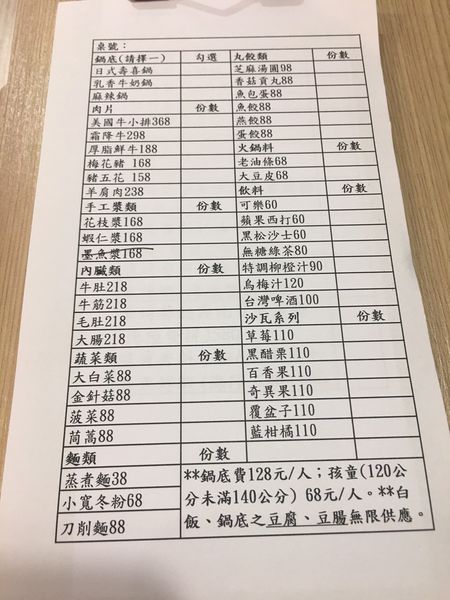 桌號：
鍋底(請擇一) 勾選 丸餃類 份數
日式壽喜鍋 芝麻湯圓98
乳香牛奶鍋 香菇貢丸88
麻辣鍋 魚包蛋88
肉片 份數 魚餃88
美國牛小排368 燕餃88
霜降牛298 蛋餃88
厚脂鮮牛188 火鍋料 份數
梅花豬 168 老油條68
豬五花 158 大豆皮68
羊肩肉238 飲料 份數
手工漿類 份數 可樂60
花枝漿168 蘋果西打60
蝦仁漿168 黑松沙士60
墨魚漿168 無糖綠茶80
內臟類 份數 特調柳橙汁90
牛肚218 烏梅汁120
牛筋218 台灣啤酒100
毛肚218 沙瓦系列 份數
大腸218 草莓110
蔬菜類 份數 黑醋栗110
大白菜88 百香果110
金針菇88 奇異果110
菠菜88 覆盆子110
茼萵88 藍柑橘110
麵類 份數
蒸煮麵38 **鍋底費128元/人；孩童(120公
小寬冬粉68 分未滿140公分) 68元/人。**白
刀削麵88 飯、鍋底之豆腐、豆腸無限供應。